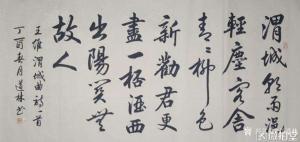 渭城朝雨浥
輕塵客舍
青々柳色
新勸君更
盡一杯酒西
出陽關無
故人
王維渭城曲詩一首
丁酉春月道林书